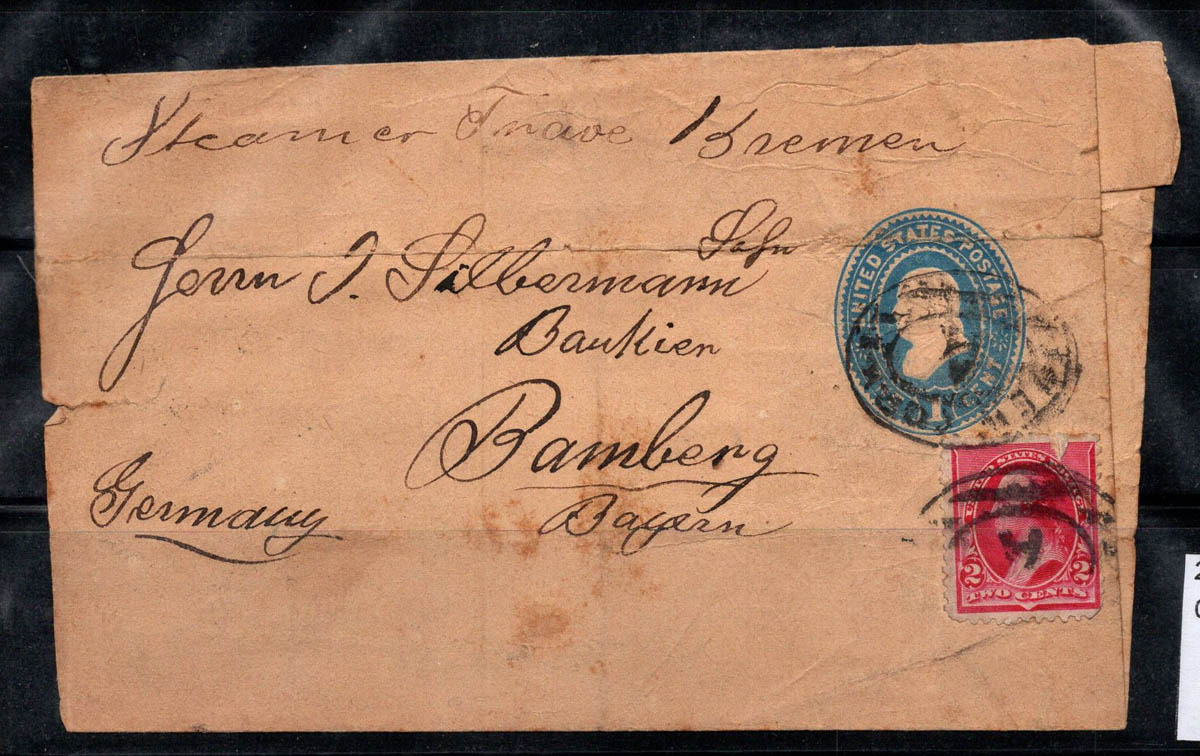 Steamer Trave Bremen
Herrn J. Silbermann Sohn
Baukier
Bamberg
Germany
Bayern
UNITED STATES POSTAGE
1 CENT
NEW YORK
UNITED STATES POSTAGE
2 2
TWO CENTS